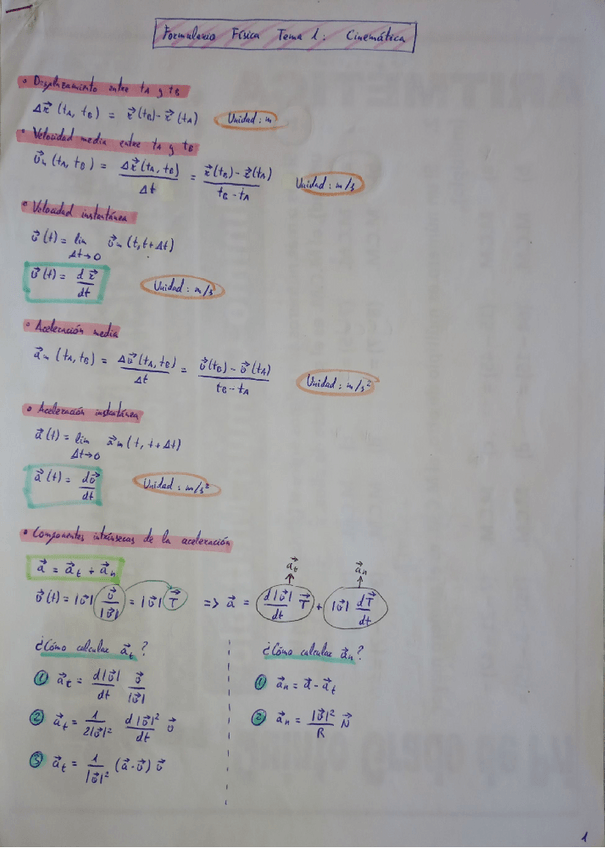 Formulario Física Tema 1: Cinemática
• Desplazamiento entre tA y tB
Δr⃗ (tA, tB) = r⃗(tB) - r⃗(tA) Unidad: m
• Velocidad media entre tA y tB
v⃗m (tA, tB) = Δr⃗(tA, tB) / Δt = r⃗(tB) - r⃗(tA) / tB - tA Unidad: m/s
• Velocidad instantánea
v⃗(t) = lim Δt→0 v⃗m (t, t+Δt)
v⃗(t) = dr⃗/dt Unidad: m/s
• Aceleración media
a⃗m (tA, tB) = Δv⃗(tA, tB) / Δt = v⃗(tB) - v⃗(tA) / tB - tA Unidad: m/s²
• Aceleración instantánea
a⃗(t) = lim Δt→0 a⃗m (t, t+Δt)
a⃗(t) = dv⃗/dt Unidad: m/s²
• Componentes intrínsecas de la aceleración
a⃗ = a⃗t + a⃗n
a⃗t a⃗n
v⃗(t) = |v⃗| v⃗/|v⃗| = |v⃗| T⃗ => a⃗ = d|v⃗|/dt T⃗ + |v⃗| dT⃗/dt
¿Cómo calcular a⃗t?
1 a⃗t = d|v⃗|/dt v⃗/|v⃗|
2 a⃗t = 1/2|v⃗|² d|v⃗|²/dt v⃗
3 a⃗t = 1/|v⃗|² (a⃗·v⃗) v⃗
¿Cómo calcular a⃗n?
1 a⃗n = a⃗ - a⃗t
2 a⃗n = |v⃗|²/R N⃗
1